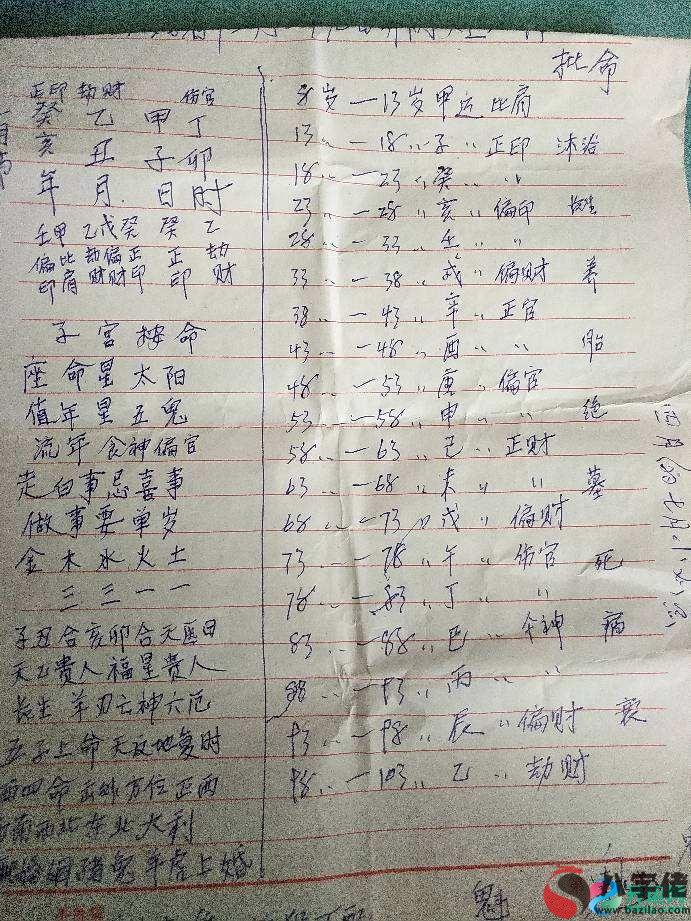 批命
正印 劫财 伤官
癸 乙 甲 丁
亥 丑 子 卯
年 月 日 时
壬甲 乙戊癸 癸 乙
偏比 劫偏正 正 劫
印肩 财财印 印 财
子宫按命
座命星太阳
值年星五鬼
流年食神偏官
走白事忌喜事
做事要单岁
金木水火土
三三一一
子丑合亥卯合天医日
天乙貴人福星貴人
长生羊刃亡神六厄
五子上命天反地复时
西四命 方位正西
南西北东北大利
婚猪兔羊虎上婚
8岁一13岁甲运比肩
13〃一18〃子〃正印 沐浴
18一23〃癸〃〃
23〃一28〃亥〃偏印 长生
28〃一33〃壬〃〃
33〃一38〃戌〃偏财 养
38〃一43〃辛〃正官
43〃一48〃酉〃〃 胎
48〃一53〃庚〃偏官
53〃一58〃申〃〃 绝
58〃一63〃己〃正财
63〃一68〃未〃〃 墓
68〃一73〃戊〃偏财
73〃一78〃午〃伤官 死
78〃一83〃丁〃〃
83〃一88〃巳〃伞神 病
88〃一93〃丙〃〃
93〃一98〃辰〃偏财 衰
98〃一103〃乙〃劫财
魁
八字佬
www.bazilao.com